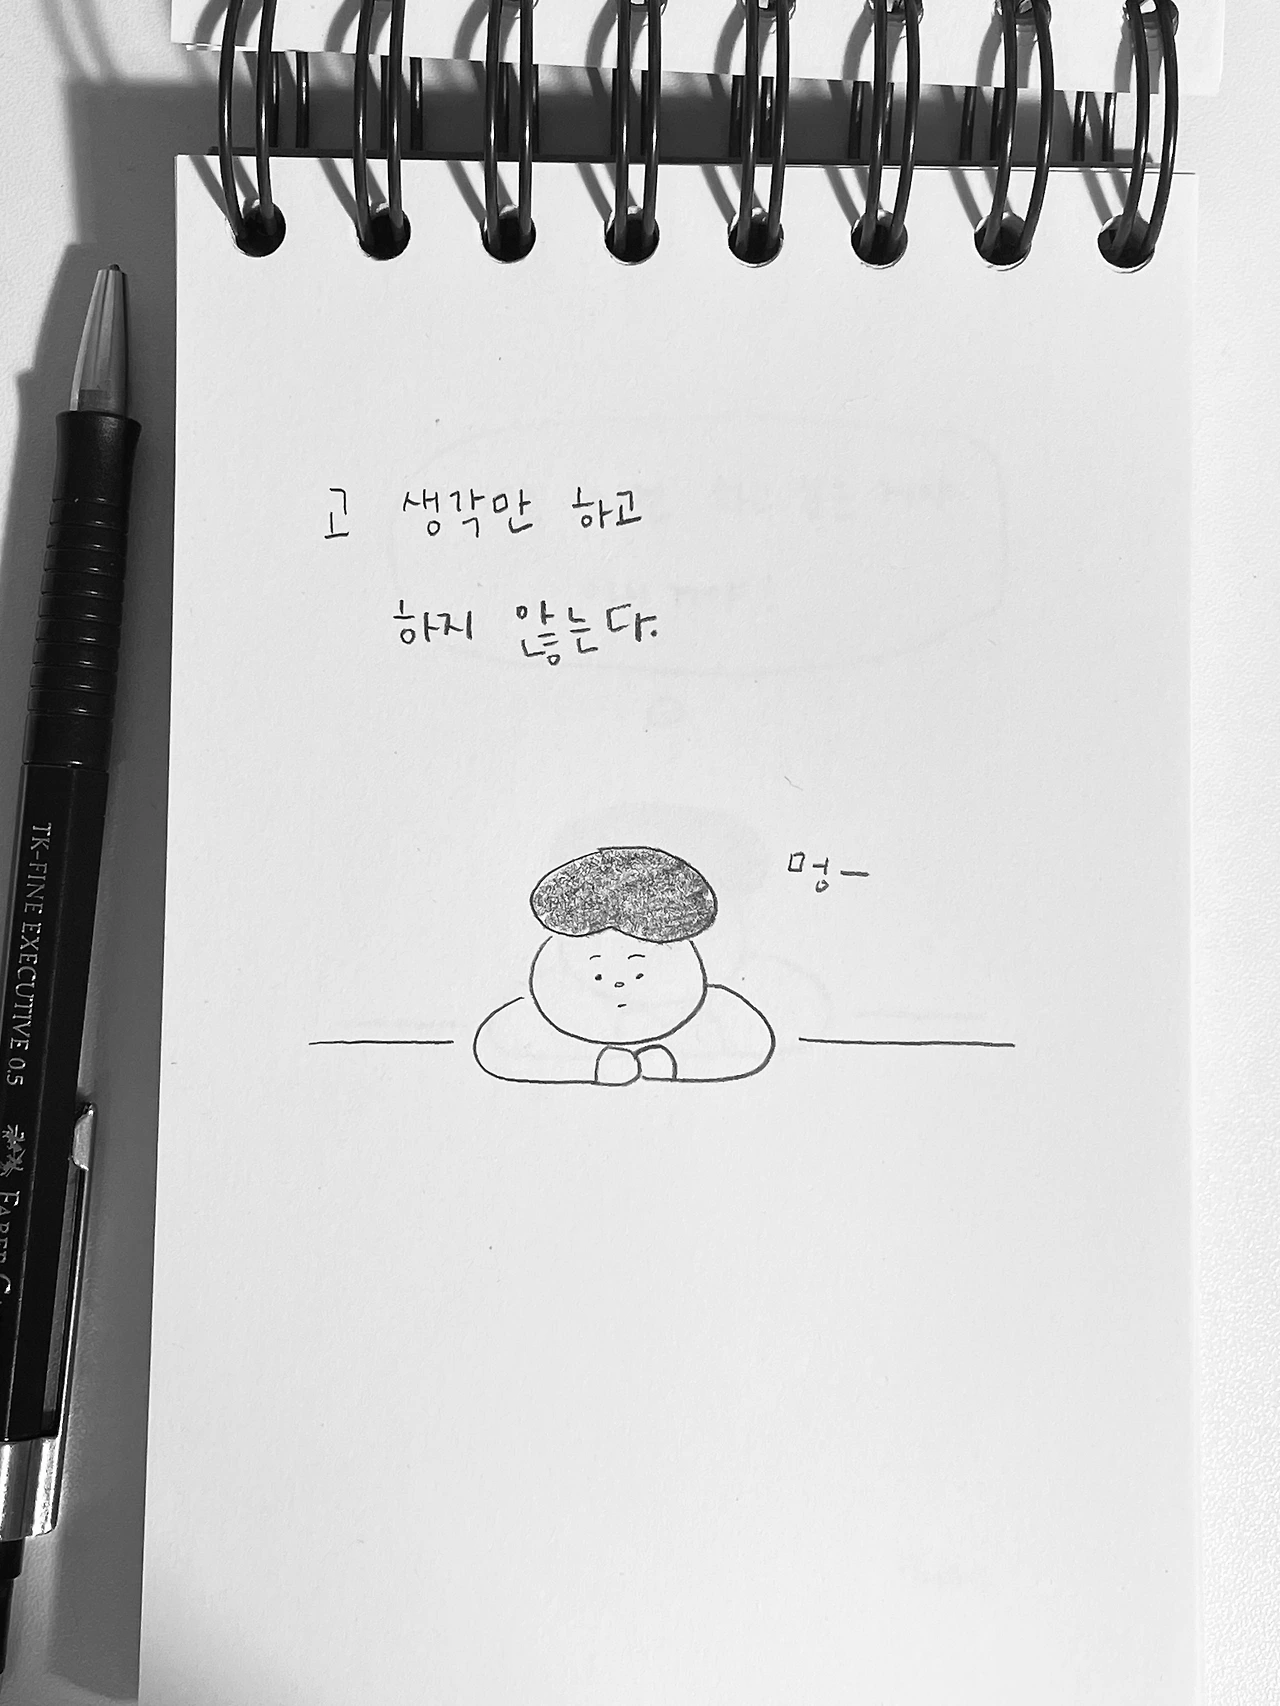 고 생각만 하고
하지 않는다.
멍—
TK-FINE EXECUTIVE 0.5